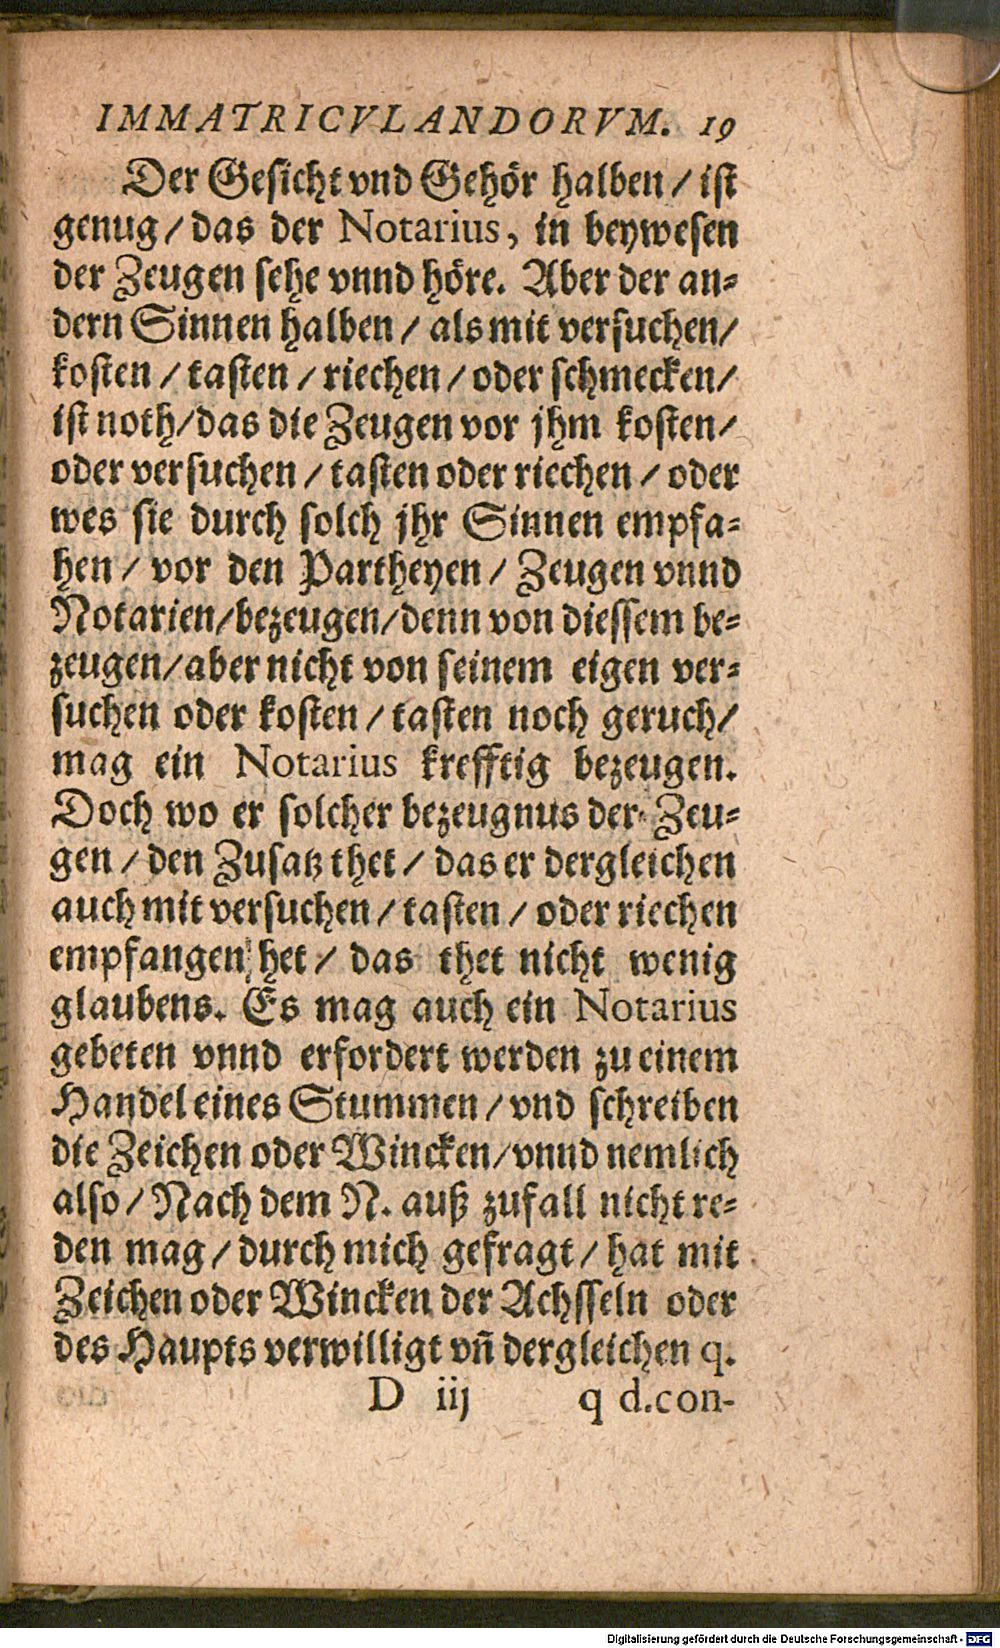 IMMATRICVLANDORVM. 19
Der Gesicht vnd Gehör halben / ist
genug / das der Notarius, in beywesen
der Zeugen sehe vnnd höre. Aber der an-
dern Sinnen halben / als mit versuchen /
kosten / tasten / riechen / oder schmecken /
ist noth / das die Zeugen vor jhm kosten /
oder versuchen / tasten oder riechen / oder
wes sie durch solch jhr Sinnen empfa-
hen / vor den Partheyen / Zeugen vnnd
Notarien / bezeugen / denn von diessem be-
zeugen / aber nicht von seinem eigen ver-
suchen oder kosten / tasten noch geruch /
mag ein Notarius krefftig bezeugen.
Doch wo er solcher bezeugnus der Zeu-
gen / den Zusatz thet / das er dergleichen
auch mit versuchen / tasten / oder riechen
empfangen het / das thet nicht wenig
glaubens. Es mag auch ein Notarius
gebeten vnnd erfordert werden zu einem
Handel eines Stummen / vnd schreiben
die Zeichen oder Wincken / vnnd nemlich
also / Nach dem N. auß zufall nicht re-
den mag / durch mich gefragt / hat mit
Zeichen oder Wincken der Achsseln oder
des Haupts verwilligt vñ dergleichen q.
D iij q d.con-
Digitalisierung gefördert durch die Deutsche Forschungsgemeinschaft - DFG